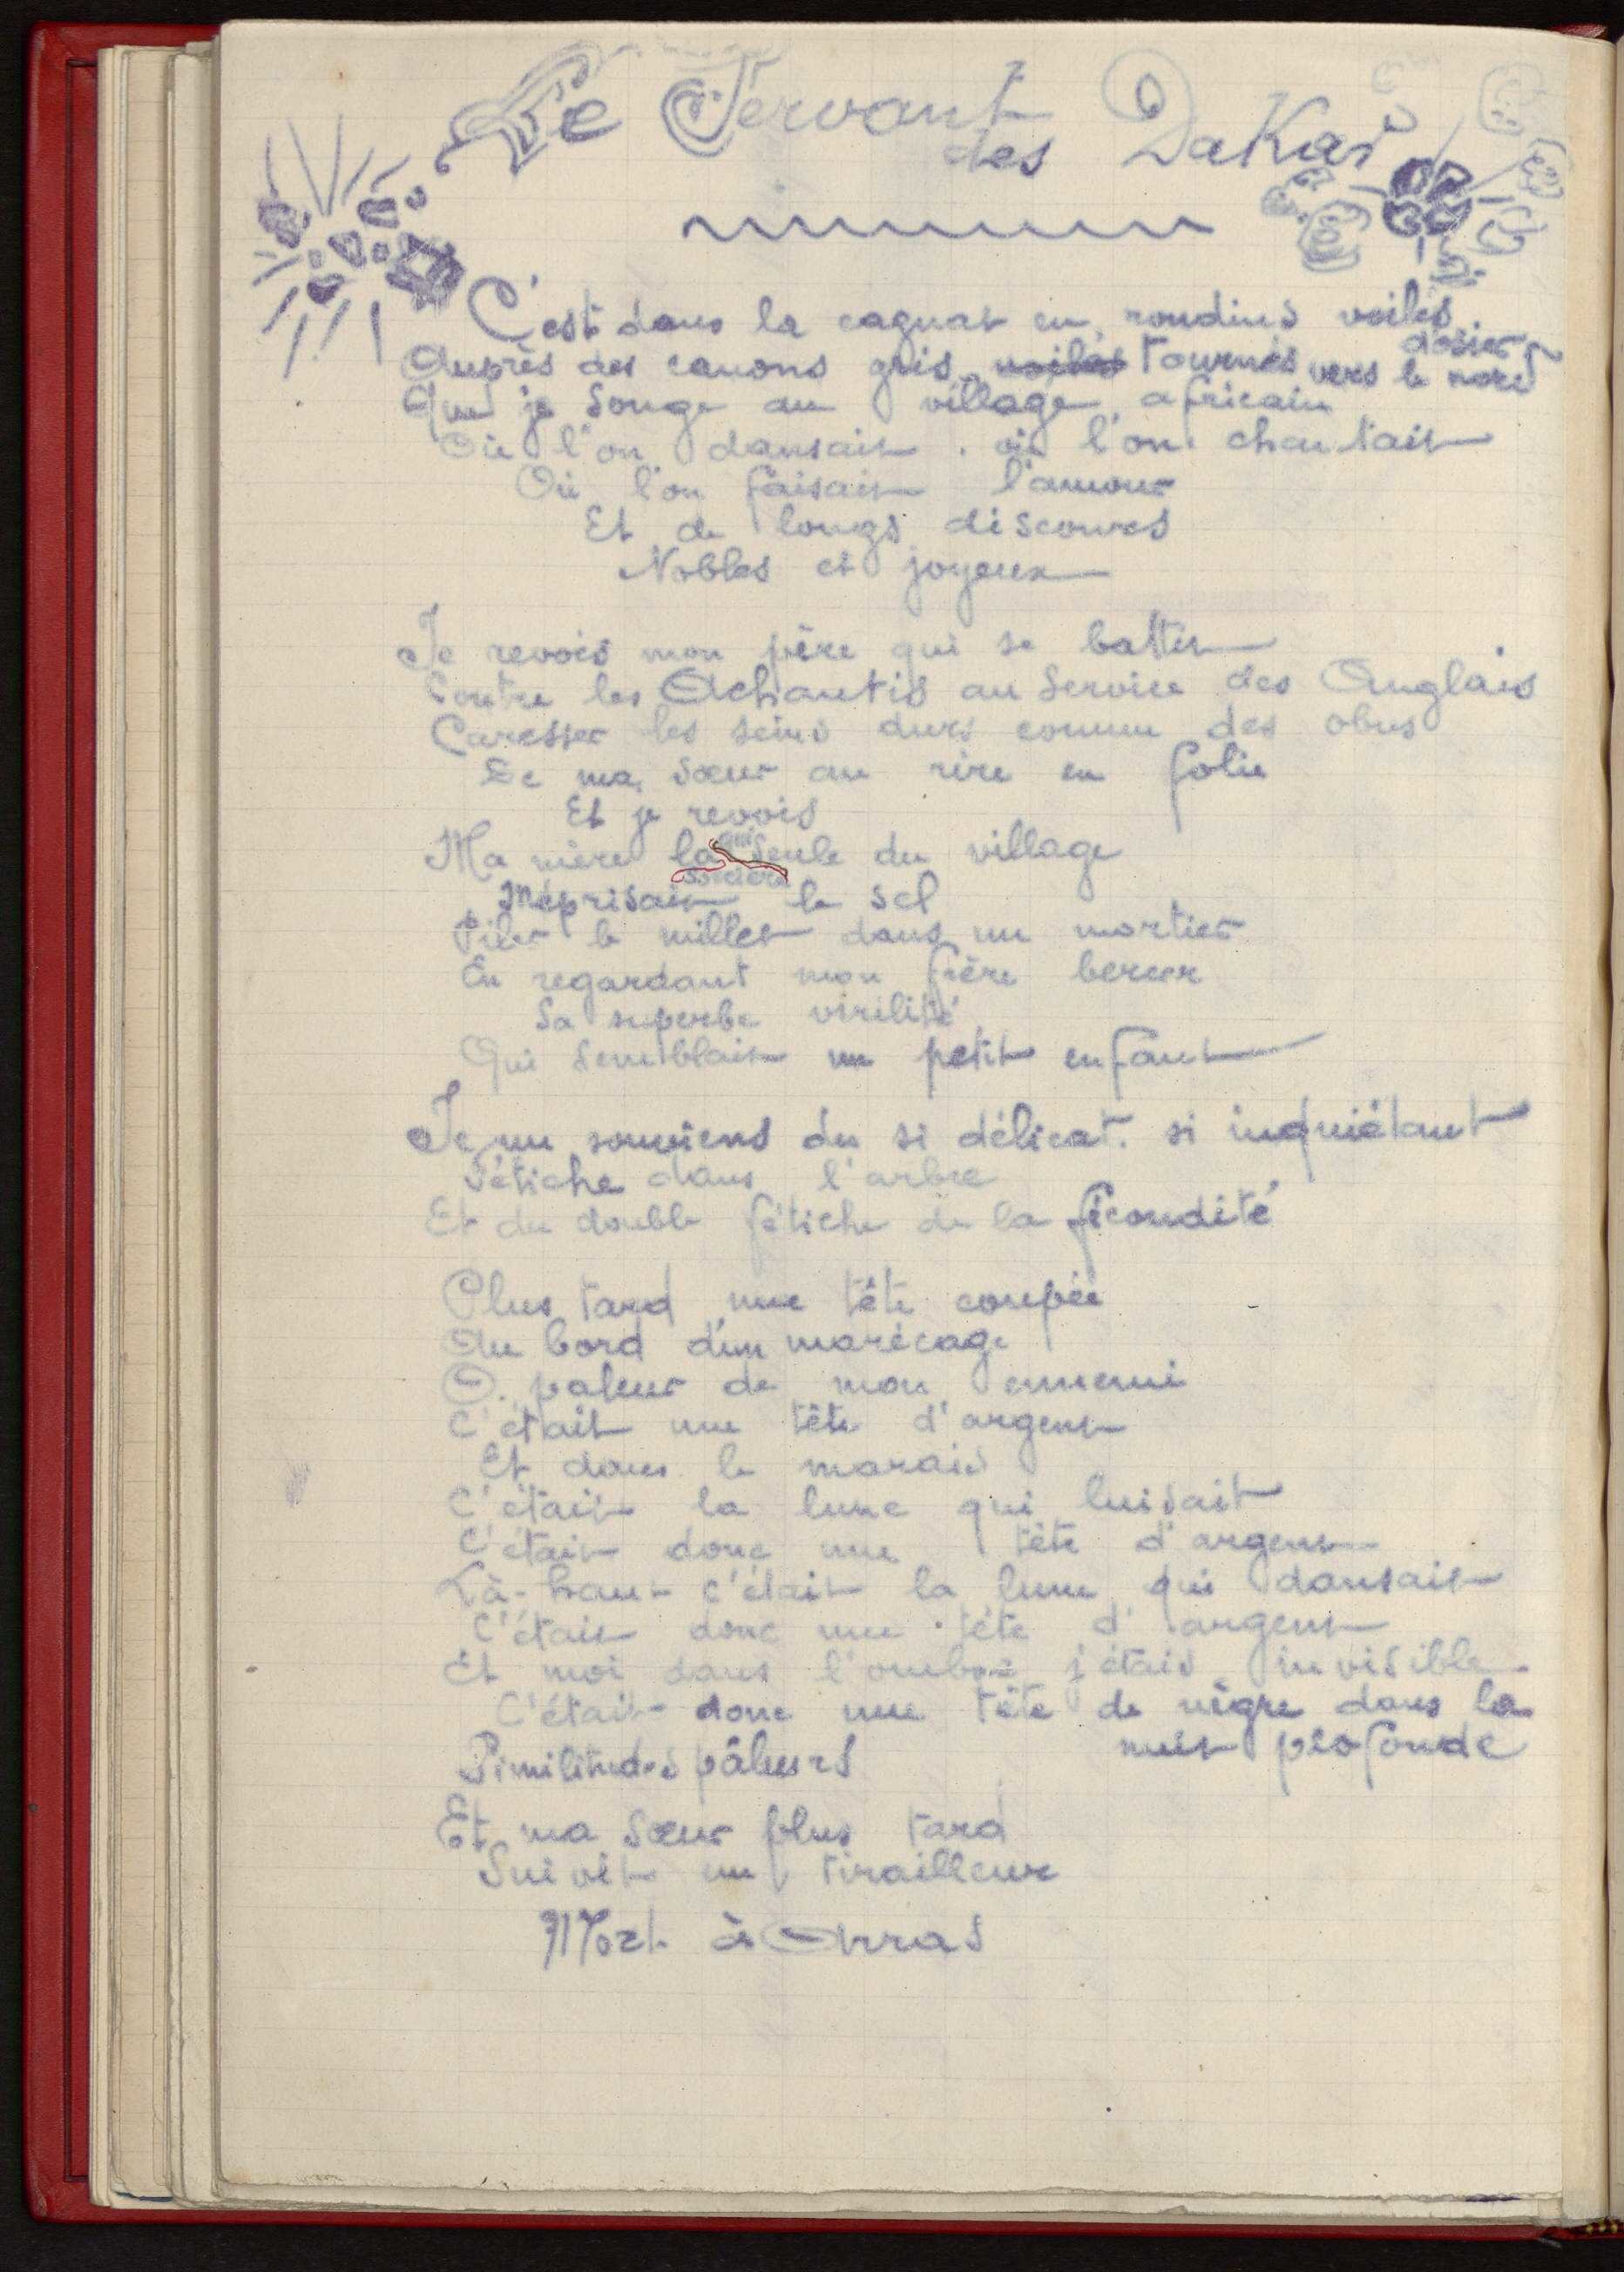 Le Servant
des Dakar
C'est dans la cagnat en rondins voilés
d'osier
Auprès des canons gris voilés tournés vers le nord
Que je songe au village africain
Où l'on dansait. où l'on chantait
Où l'on faisait l'amour
Et de longs discours
Nobles et joyeux
Je revois mon père qui se battit
Contre les Achantis au service des Anglais
Caresser les seins durs comme des obus
De ma sœur au rire en folie
Et je revois
Ma mère la qui seule du village
sorcière
Méprisait le sel
Piler le millet dans un mortier
En regardant mon frère bercer
Sa superbe virilité
Qui semblait un petit enfant
Je me souviens du si délicat. si inquiétant
Fétiche dans l'arbre
Et du double fétiche de la fécondité
Plus tard une tête coupée
Au bord d'un marécage
O. paleur de mon ennemi
C'était une tête d'argent
Et dans le marais
C'était la lune qui luisait
C'était donc une tête d'argent
Là-haut c'était la lune qui dansait
C'était donc une tête d'argent
Et moi dans l'ombre j'étais invisible
C'était donc une tête de nègre dans la
nuit profonde
Similitudes pâleurs
Et ma sœur plus tard
Suivit un tirailleur
Mort à Arras